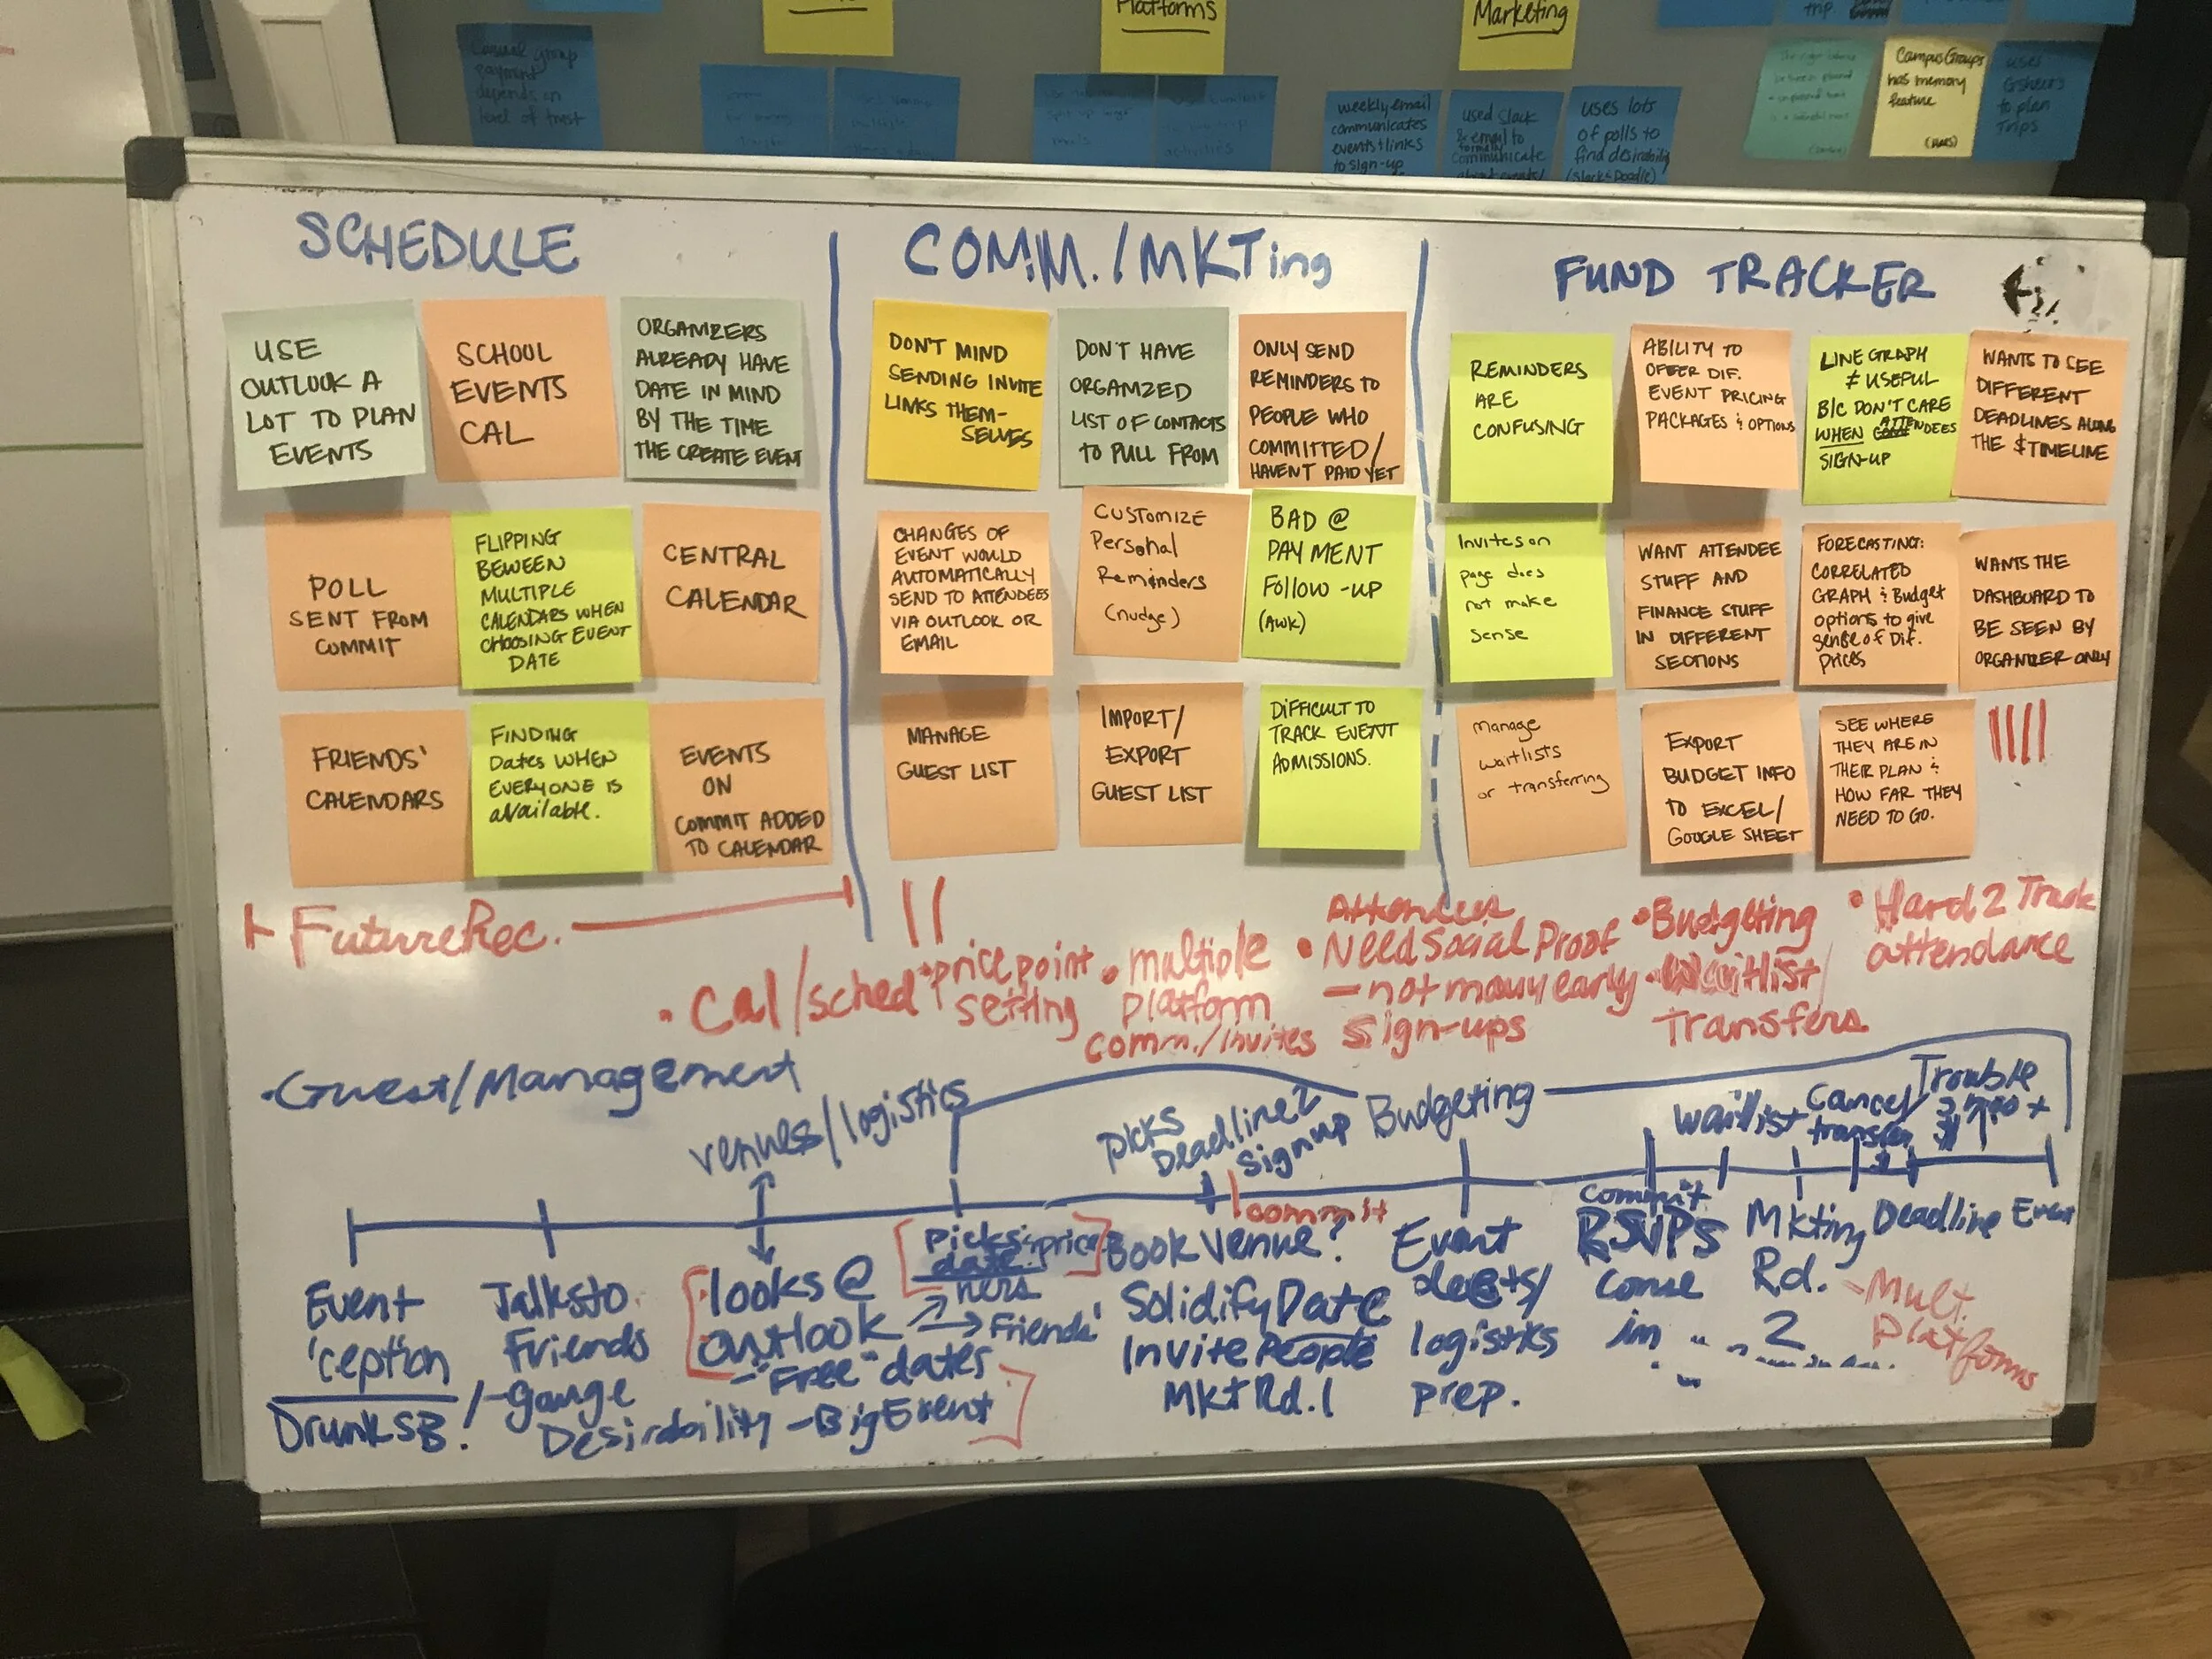 Platforms
Marketing
trip.
Casual group
payment
depends on
level of trust
weekly email
communicates
events + links
to sign-up
used Slack
& email to
formally
communicate
uses lots
of polls to
find desirability
(Slack & Doodle)
CampusGroups
has memory
feature
uses
Gsheets
to plan
Trips
SCHEDULE
USE
OUTLOOK A
LOT TO PLAN
EVENTS
SCHOOL
EVENTS
CAL
ORGANIZERS
ALREADY HAVE
DATE IN MIND
BY THE TIME
THE CREATE EVENT
POLL
SENT FROM
COMMIT
FLIPPING
BEWEEN
MULTIPLE
CALENDARS WHEN
CHOOSING EVENT
DATE
CENTRAL
CALENDAR
FRIENDS'
CALENDARS
FINDING
Dates WHEN
EVERYONE IS
available.
EVENTS
ON
COMMIT ADDED
TO CALENDAR
COMM./MKTing
DON'T MIND
SENDING INVITE
LINKS THEM-
SELVES
DON'T HAVE
ORGANIZED
LIST OF CONTACTS
TO PULL FROM
ONLY SEND
REMINDERS TO
PEOPLE WHO
COMMITTED/
HAVENT PAID YET
CHANGES OF
EVENT WOULD
AUTOMATICALLY
SEND TO ATTENDEES
VIA OUTLOOK OR
EMAIL
CUSTOMIZE
Personal
Reminders
(nudge)
BAD @
PAYMENT
Follow-up
(AWK)
MANAGE
GUEST LIST
IMPORT/
EXPORT
GUEST LIST
DIFFICULT TO
TRACK EVENT
ADMISSIONS.
FUND TRACKER
REMINDERS
ARE
CONFUSING
ABILITY TO
OFFER DIF.
EVENT PRICING
PACKAGES & OPTIONS
LINE GRAPH
≠ USEFUL
B/C DON'T CARE
WHEN ATTENDEES
SIGN-UP
WANTS TO SEE
DIFFERENT
DEADLINES ALONG
THE $ TIMELINE
Invites on
page does
not make
sense
WANT ATTENDEE
STUFF AND
FINANCE STUFF
IN DIFFERENT
SECTIONS
FORECASTING:
CORRELATED
GRAPH & Budget
options to give
sense of Dif.
prices
WANTS THE
DASHBOARD TO
BE SEEN BY
ORGANIZER ONLY
Manage
waitlists
or transferring
EXPORT
BUDGET INFO
TO EXCEL/
GOOGLE SHEET
SEE WHERE
THEY ARE IN
THEIR PLAN &
HOW FAR THEY
NEED TO GO.
Future Rec.
• Cal/sched
• price point
setting
• multiple
Platform
comm./invites
Attendees
• Need Social Proof
- not many early
sign-ups
• Budgeting
• Waitlist/
Transfers
• Hard 2 Track
attendance
• Guest/Management
venues/logistics
Picks
Deadline 2
Signup
Budgeting
Waitlist
Cancel/
transfer
Trouble
commit
Event
'ception
Drunk SB!
Talks to
Friends
/-gauge
Desirability
looks @
outlook
-"Free" dates
-Big Event
Picks & price
date.
hers
Friends'
Book Venue?
Solidify Date
Invite People
Mkt Rd. 1
Event
deets/
logistiks
prep.
commit
RSVPs
come
in...
Mkting
Rd.
2
Deadline
Event
-Mult.
Platforms